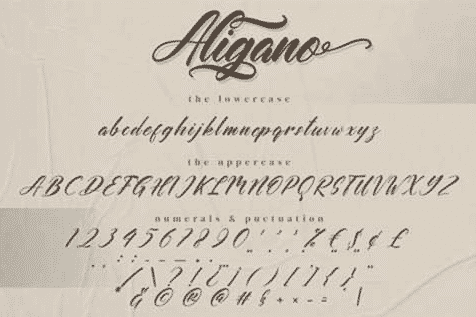 Aligano
the lowercase
abcdefghijklmnopqrstuvwxyz
the uppercase
ABCDEFGHIJKLMNOPQRSTUVWXYZ
numerals & puctuation
1234567890 ' ' " % € $ ¢ £
. , : ; - – — • … " "
/ \ ? ! ¿ ¡ ( ) [ ] { } „
& © ® @ # § + × - = |